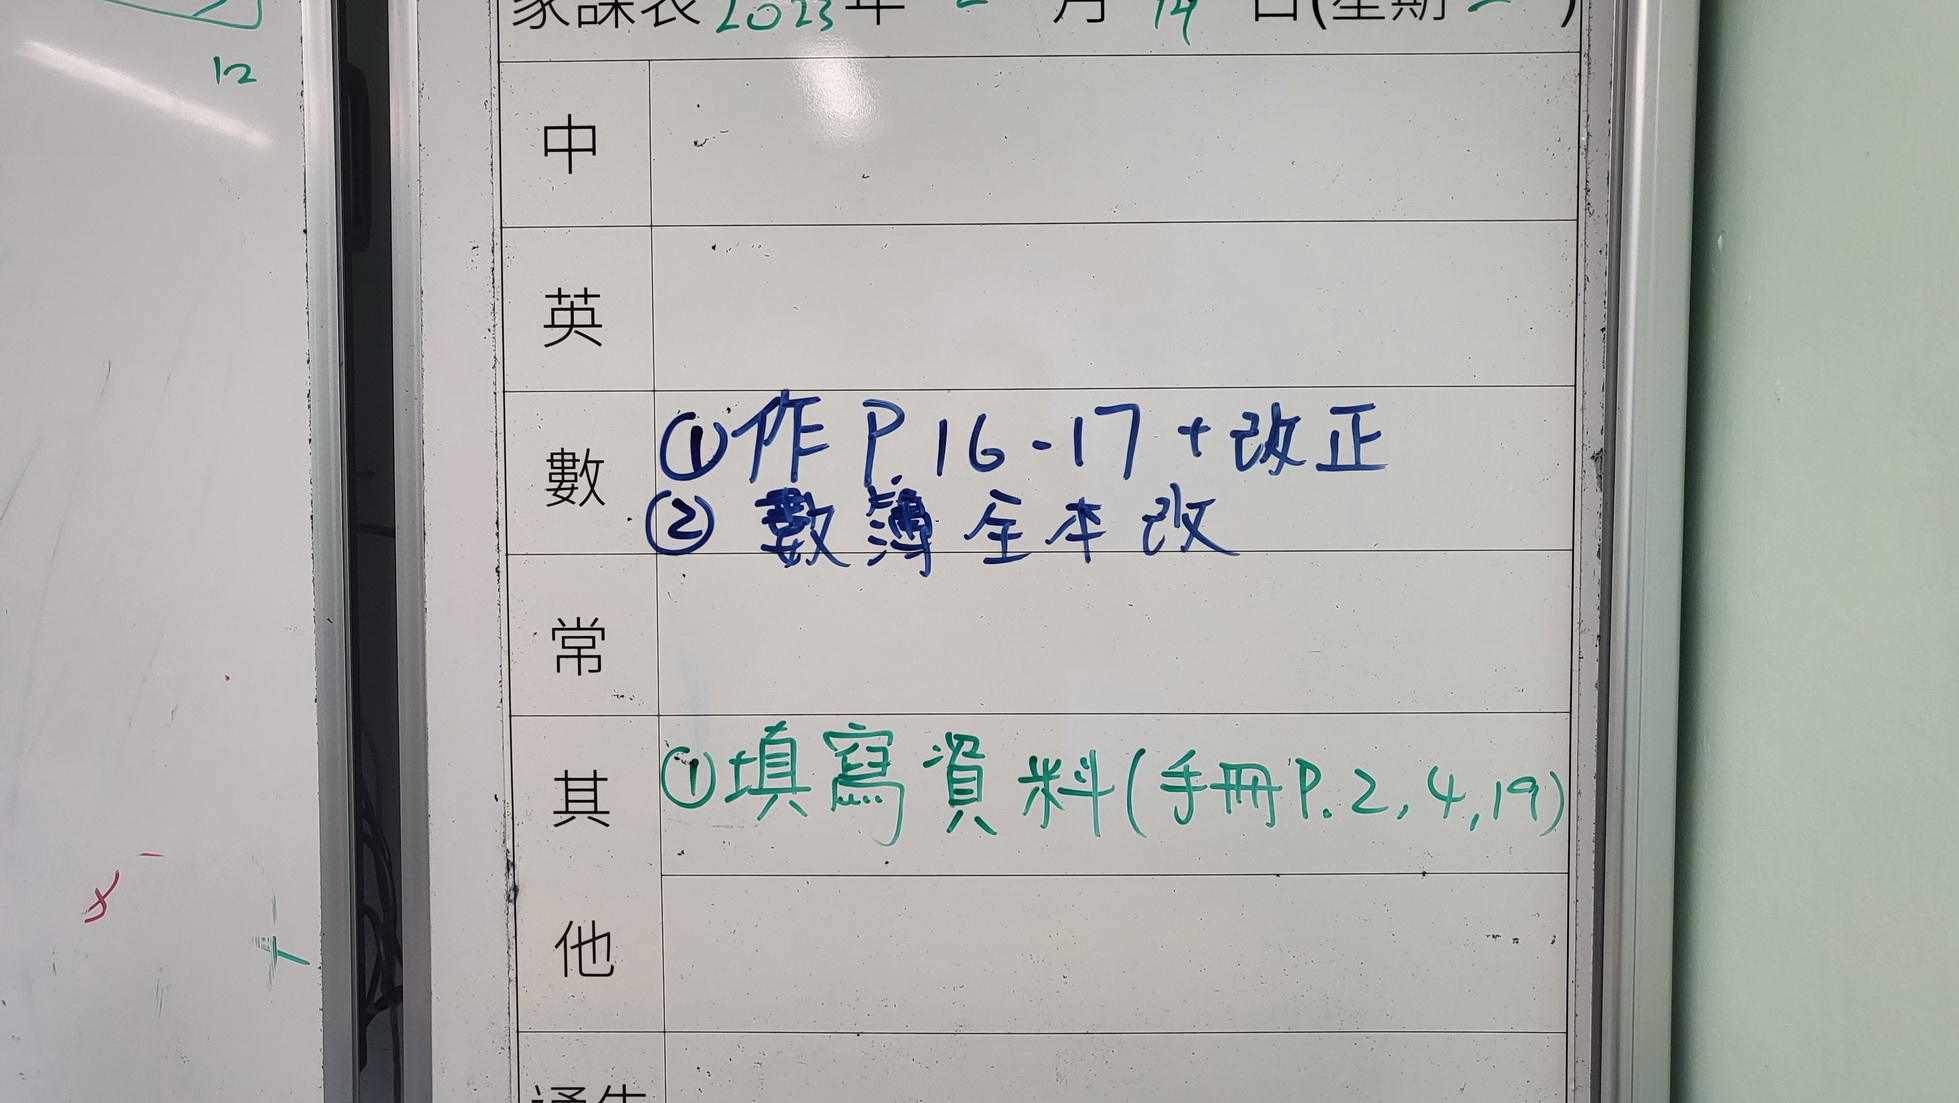 12
家課表2023年 月14日(星期二)
中
英
數
①作P.16-17+改正
②數簿全本改
常
其他
①填寫資料(手冊P.2,4,19)
通告